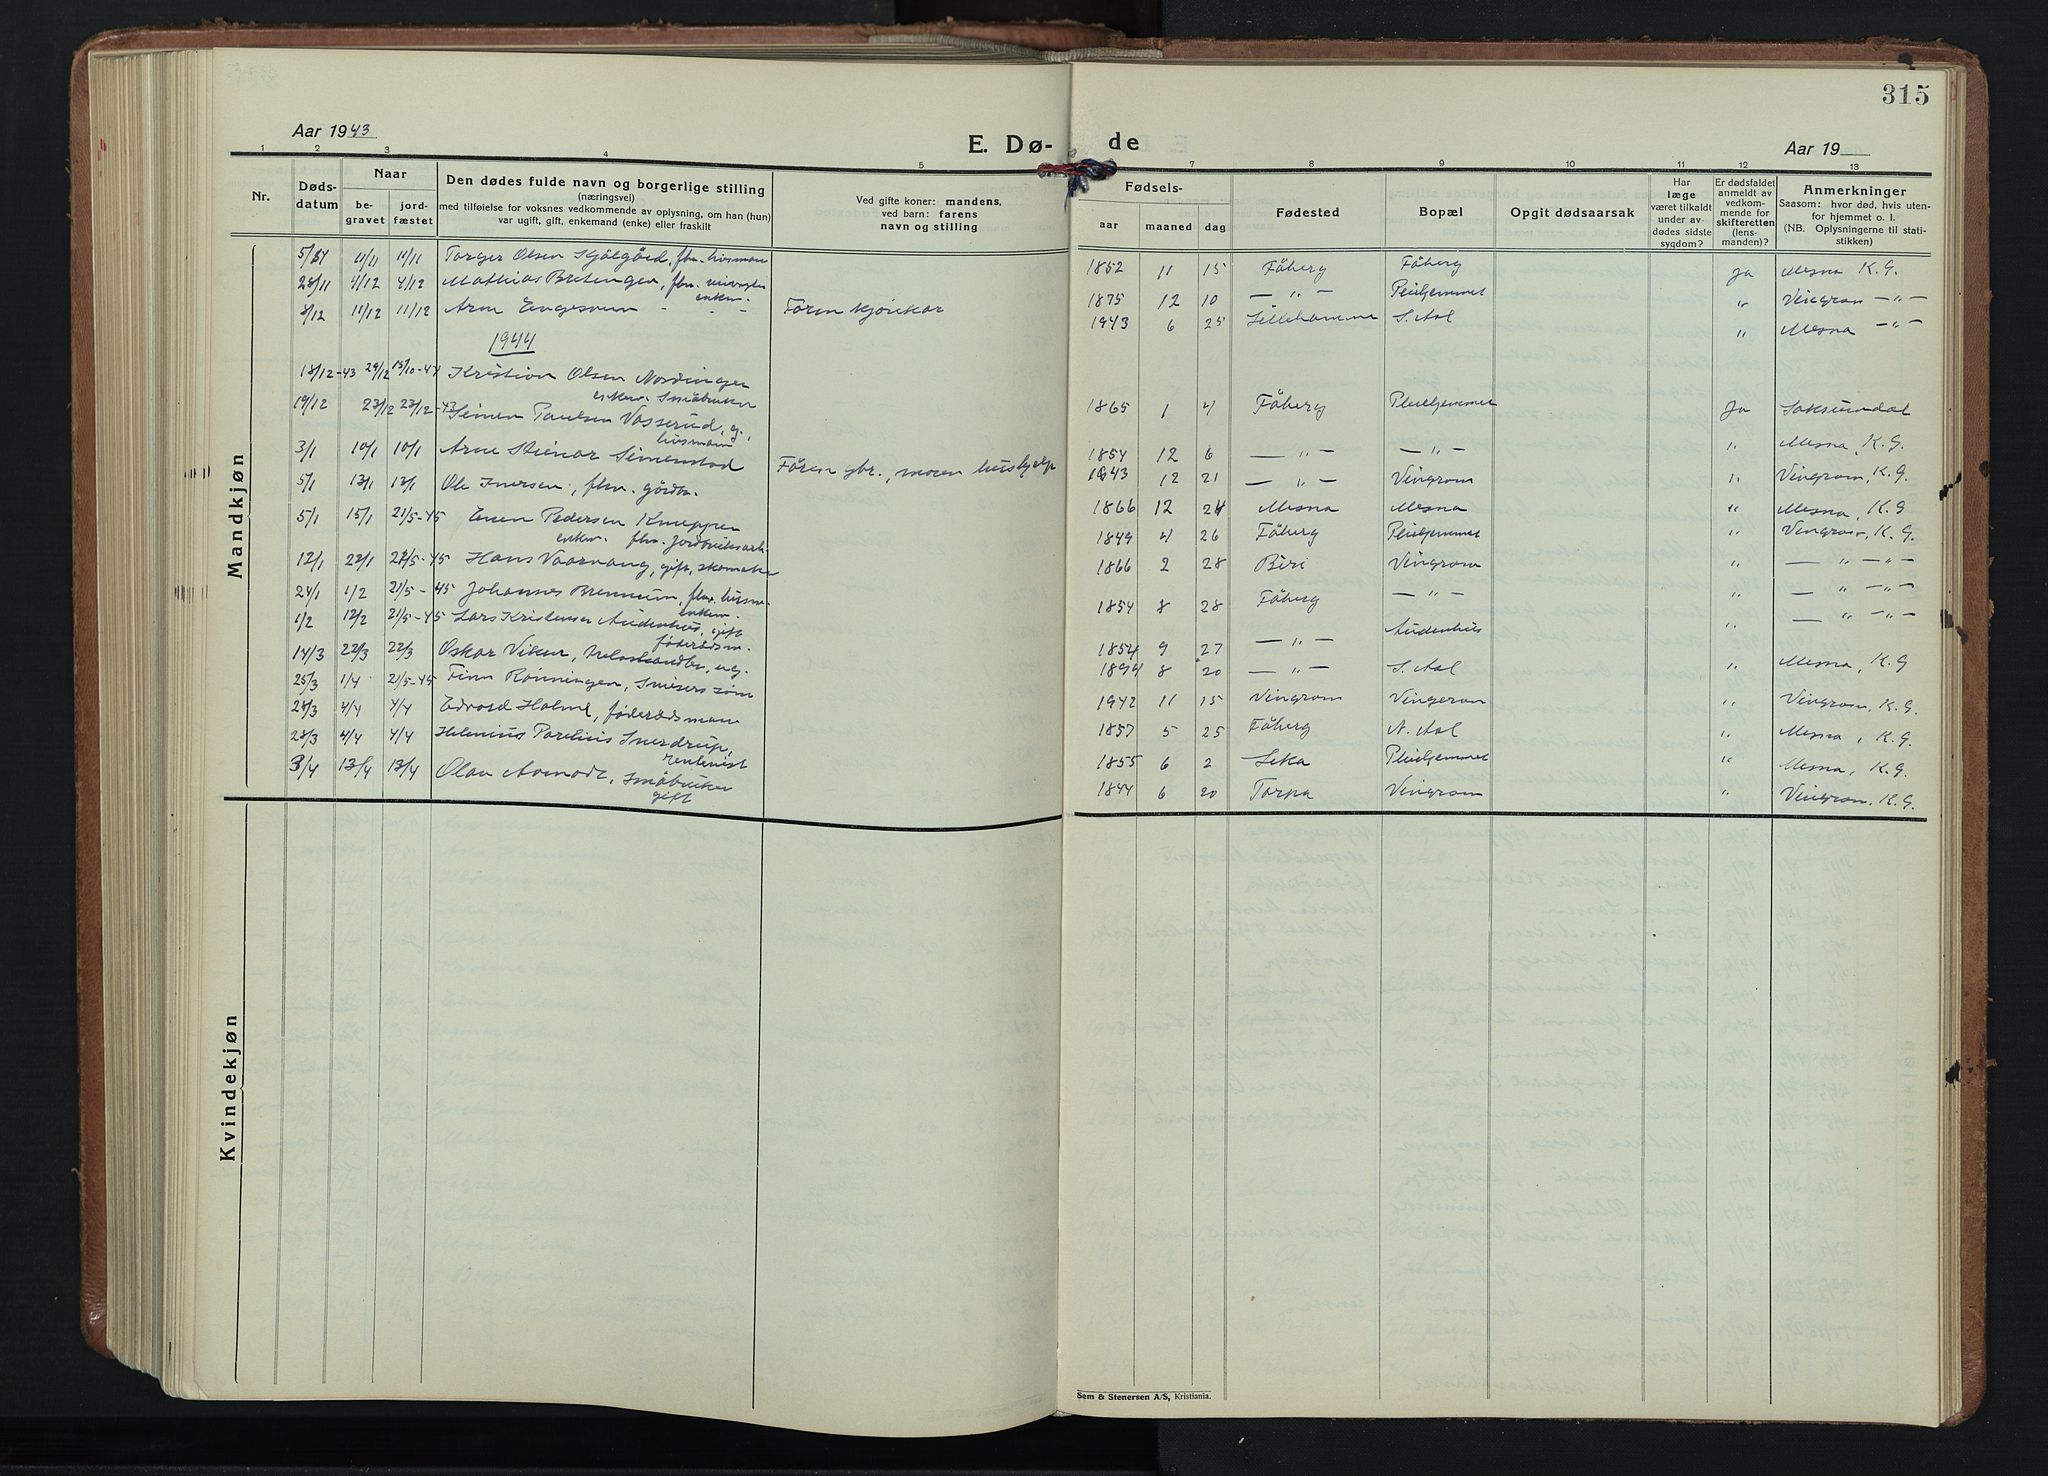 315
Aar 1943
E. Dø-
de
Aar 19
1 2 3 4 5 7 8 9 10 11 12 13
Nr.
Døds-
datum
Naar
be-
gravet
jord-
fæstet
Den dødes fulde navn og borgerlige stilling
(næringsvei)
med tilføielse for voksnes vedkommende av oplysning, om han (hun)
var ugift, gift, enkemand (enke) eller fraskilt
Ved gifte koner: mandens,
ved barn: farens
navn og stilling
Fødsels-
aar maaned dag
Fødested
Bopæl
Opgit dødsaarsak
Har
læge
været tilkaldt
under av-
dødes sidste
sygdom?
Er dødsfaldet
anmeldt av
vedkom-
mende for
skifteretten
(lens-
manden)?
Anmerkninger
Saasom: hvor død, hvis uten-
for hjemmet o. l.
(NB. Oplysningerne til stati-
stikken)
Mandkjøn
11/11 11/11 Torger Olsen, fhv. husmann
1852 11 15 Fåberg Fåberg Ja Mesna K.G.
28/11 4/12 4/12 Mathias, fhv.
enkem.
1875 12 10 — " — Pleiehjemmet " Vingrom — " —
8/12 11/12 11/12 Arne Engesveen - - -
Faren
1943 6 25 Lillehammer S. Aal " Mesna — " —
1944
18/12-43 29/12 Kristian Olsen Nordinger
enkem. Småbruker
1865 1 4 Fåberg Pleiehjemmet Ja Saksumdal
19/12 23/12 23/12-43 Simen Paulsen Vasserud, g.,
husmann
1854 12 6 — " — — " — " Mesna, K.G.
3/1 10/1 10/1 Arne Steinar Simenstad
Faren gbr., moren hushjelp
1943 12 21 — " — Vingrom " Vingrom, K.G.
5/1 13/1 13/1 Ole Iversen, fhv. gårdbr.
1866 12 24 Mesna Mesna " Mesna, K.G
5/1 15/1 21/5-45 Even Pedersen Kneppen
enkem. fhv. jordbruksarb.
1849 4 26 Fåberg Pleiehjemmet " Vingrom, K.G.
12/1 22/1 21/5-45 Hans Vaarvang, gift, skomaker
1866 2 28 Biri Vingrom " — " — " —
24/1 1/2 21/5-45 Johannes Brennum, fhv. husm.
enkem.
1854 8 28 Fåberg — " — " — " — " —
1/2 12/2 21/5-45 Lars Kristensen Audenhus, gift
føderådsm.
1854 9 27 — " — Audenhus " — " — " —
14/3 22/3 22/3 Oskar Viken, ug.
1894 8 20 — " — S. Aal " Mesna, K.G
25/3 1/4 21/5-45 Finn Rønningen, Snekkers sønn
1942 11 15 Vingrom Vingrom " Vingrom, K.G.
28/3 4/4 4/4 Edvard Holme, føderådsmann
1857 5 25 Fåberg N. Aal " Mesna, K.G.
28/3 4/4 4/4 Helenius Parelius Sverdrup,
rentenist
1855 6 2 Leka Pleiehjemmet " Mesna, K.G.
3/4 13/4 13/4 Olav Aamodt, Småbruker
gift
1844 6 20 Torpa Vingrom " Vingrom, K.G.
Kvindekjøn
Sem & Stenersen A/S, Kristiania.